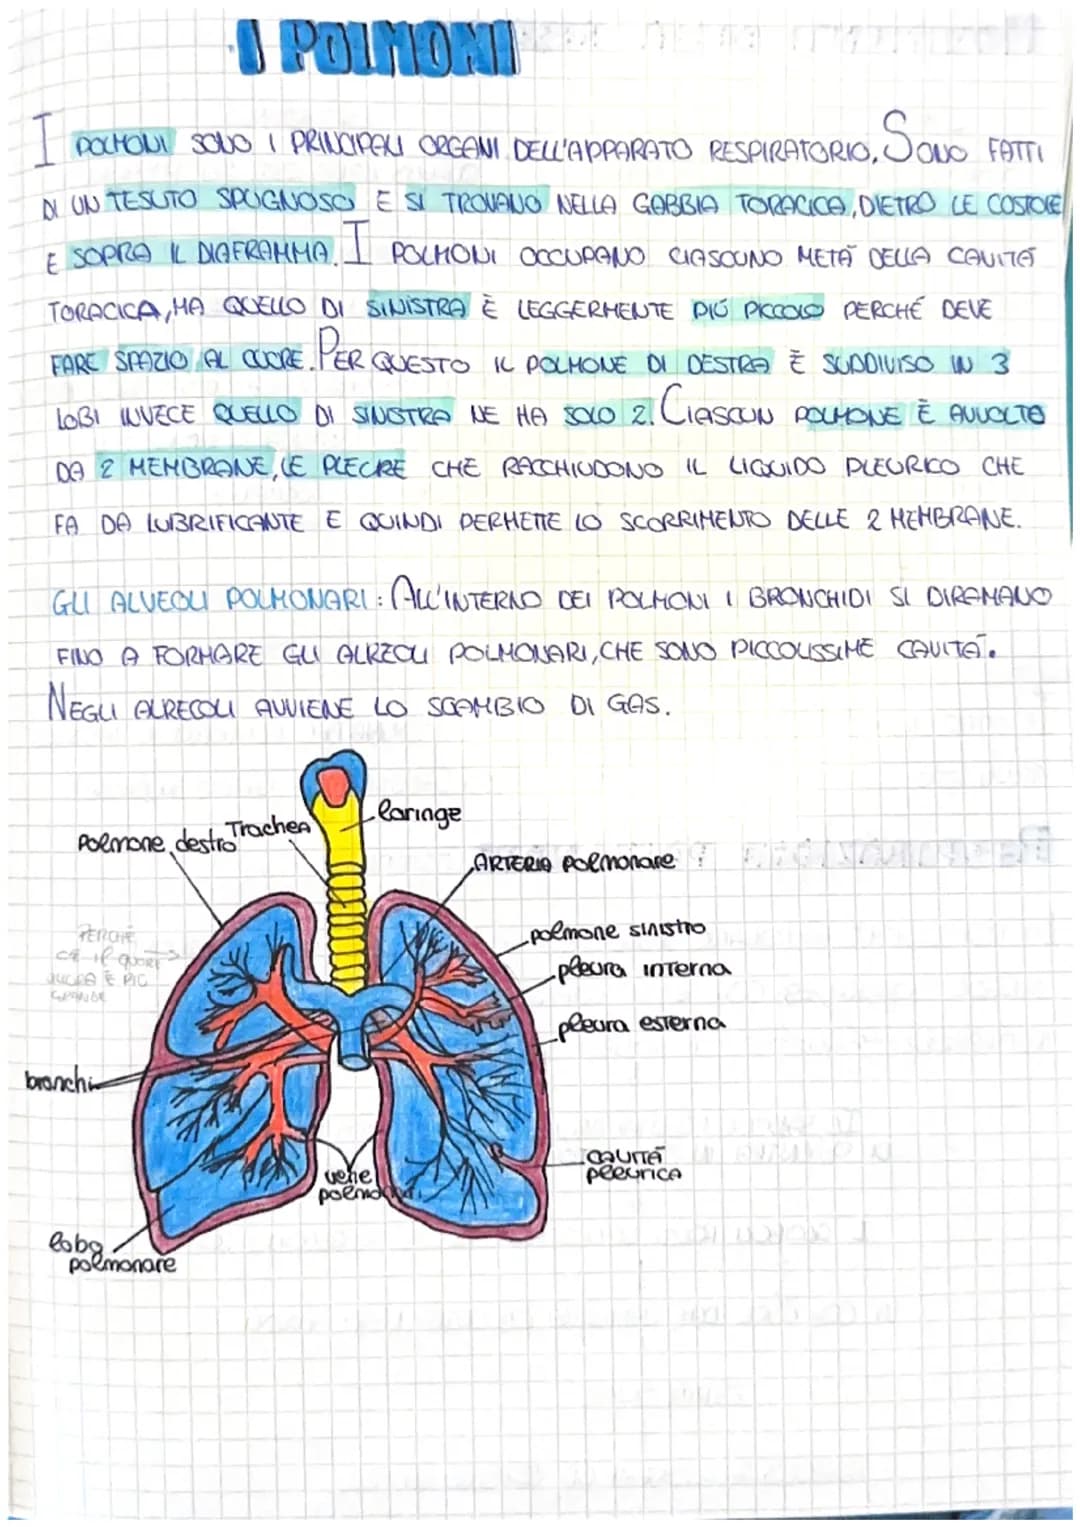 I POLMONI
I POLMONI SONO I PRINCIPALI ORGANI DELL'APPARATO RESPIRATORIO. SONO FATTI
DI UN TESUTO SPUGNOSO E SI TROVANO NELLA GABBIA TORACICA, DIETRO LE COSTOLE
E SOPRA IL DIAFRAMMA. I POLMONI OCCUPANO CIASCUNO METÀ DELLA CAVITÀ
TORACICA, MA QUELLO DI SINISTRA È LEGGERMENTE PIÚ PICCOLO PERCHÉ DEVE
FARE SPAZIO AL CUORE. PER QUESTO IL POLMONE DI DESTRA È SUDDIVISO IN 3
LOBI INVECE QUELLO DI SINISTRA NE HA SOLO 2. CIASCUN POLMONE È AVVOLTO
DA 2 MEMBRANE, LE PLEURE CHE RACCHIUDONO IL LIQUIDO PLEURICO CHE
FA DA LUBRIFICANTE E QUINDI PERMETTE LO SCORRIMENTO DELLE 2 MEMBRANE.
GLI ALVEOLI POLMONARI: ALL'INTERNO DEI POLMONI I BRONCHIDI SI DIRAMANO
FINO A FORMARE GLI ALREOLI POLMONARI, CHE SONO PICCOLISSIME CAVITÀ.
NEGLI ALRECOLI AVVIENE LO SCAMBIO DI GAS.
laringe
Trachea
Polmone destro
ARTERIA Polmonare
polmone sinistro
PERCHÈ
c'è il quore
pleura interna
GRANDE
pleura esterna
bronchi
CAVITÀ
pleurica
vene
lobo
polmonare